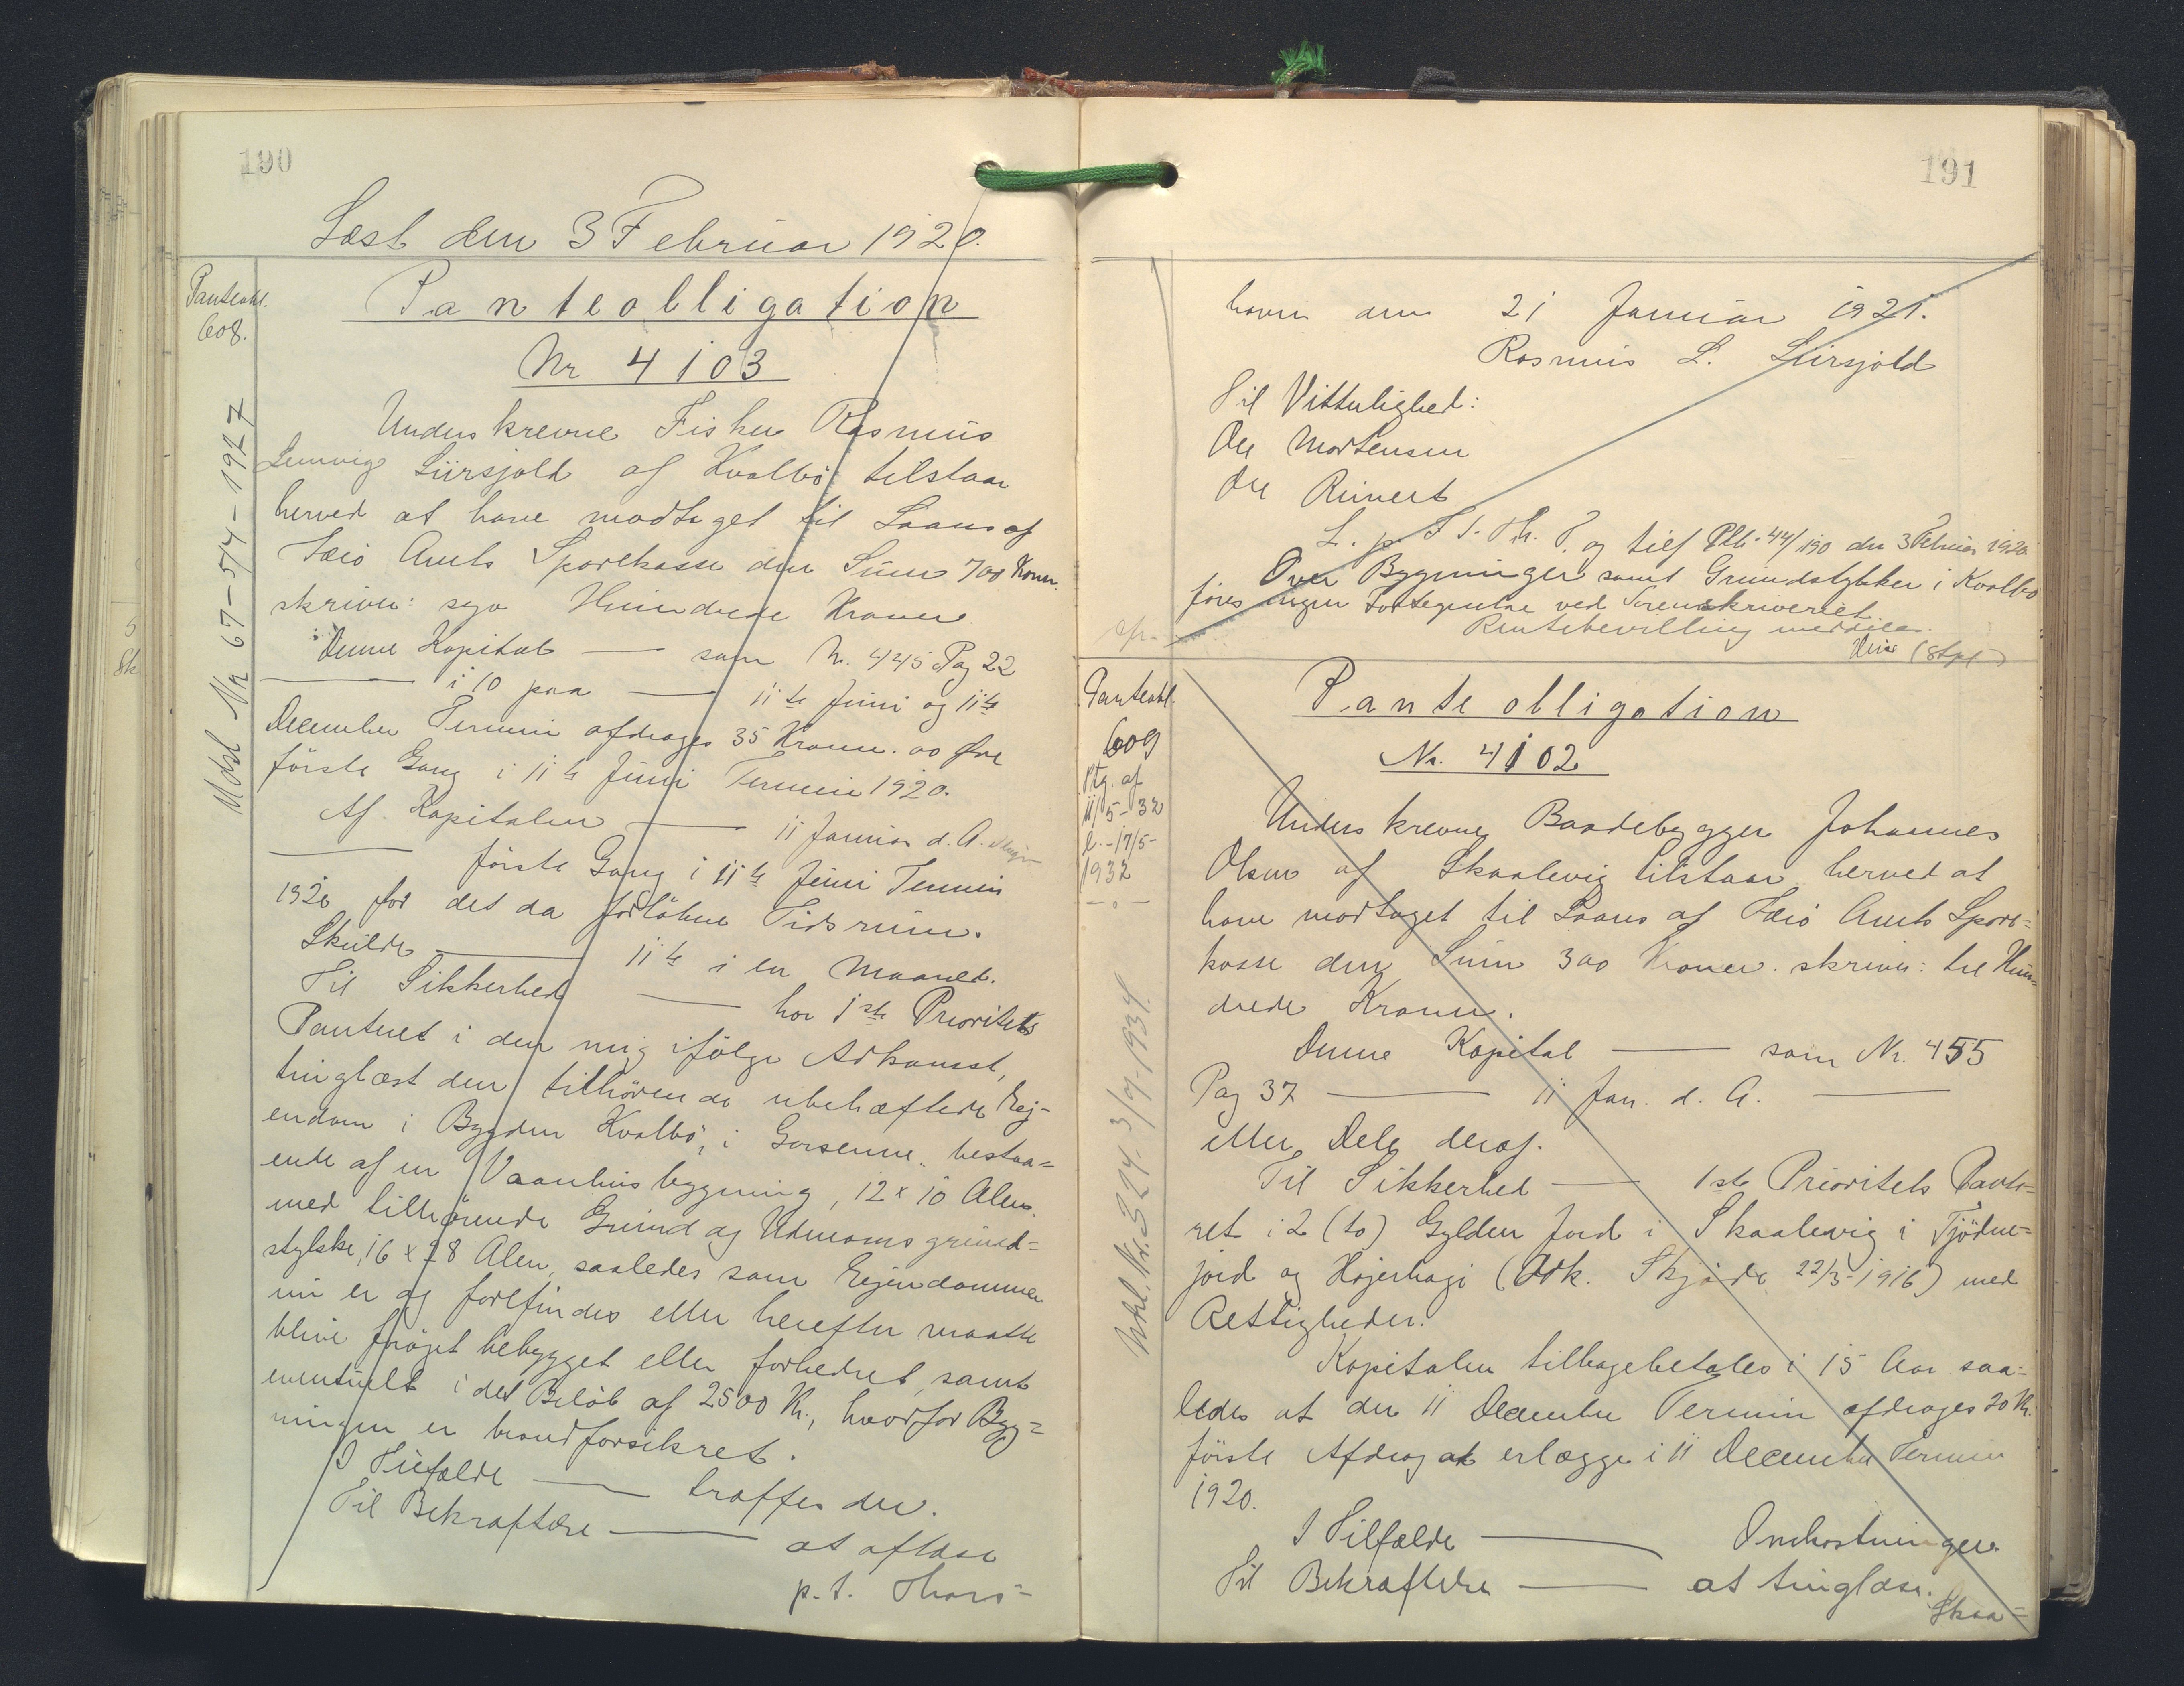 190
Læst den 3 Februar 1920.
Panteobl.
608.
Udsl Nr 67-5/4-1927
Panteobligation
Nr 4103
Underskrevne Fisker Rasmus
Lemvig Lürsjold af Kvalbö tilstaar
herved at have modtaget til Laans af
Færö Amts Sparekasse den Sum 700 Kroner.
skriver: syv Hundrede Kroner.
Denne Kapital — som Nr. 445 Pag 22
— i 10 paa — 11te Juni og 11te
December Termin afdrages 35 Kroner. 00 Øre
förste Gang i 11te Juni Termin 1920.
Af Kapitalen — 11 Januar d. A.
— förste Gang i 11te Juni Termin
1920 for det da forlöbne Tidsrum.
Skulde — 11te i en Maaned.
Til Sikkerhed — har 1ste Prioritets
Panteret i den mig ifölge Adkomst,
tinglæst den tilhörende ubehæftede Ej-
endom i Bygden Kvalbö, i Gorsenne. bestaa=
ende af en Vaanhusbygning, 12 x 10 Alen.
med tilhörende Grund og Udmarksgrund=
stykke, 16 x 28 Alen, saaledes som Ejendommen
nu er og forefindes eller herefter maatte
blive foröget bebygget eller forbedret, samt
eventuelt i det Belöb af 2500 Kr., hvorfor Byg=
ningen er brandforsikret.
I Tilfælde — træffes der.
Til Bekræftelse — at aflæse
p. t. Thors=
191
havn den 21 Januar 1921.
Rasmus L. Lürsjold
Til Vitterlighed:
Ole Mortensen
Ole Reinert
L. p. F. T. Th. P. og tilf Ptb. 44/190 den 3 Februar 1920
Over Bygninger samt Grundstykker i Kvalbö
föres ingen Fortegnelse ved Sorenskriveriet.
Rentebevilling meddeles.
(Stpl)
Panteobl.
609
Ktg. af
11/5-32
l.-17/5-
1932
Udsl. Nr. 324-3/7-1934.
Panteobligation
Nr. 4102
Underskrevne Baadebygger Johannes
Olsen af Skaalevig tilstaar herved at
have modtaget til Laans af Færö Amts Spare=
kasse den Sum 300 Kroner. skriver: tre Hun=
drede Kroner.
Denne Kapital — som Nr. 455
Pag 37 — 11 Jan. d. A. —
eller Dele deraf.
Til Sikkerhed — 1ste Prioritets Pante=
ret i 2 (to) Gylden Jord i Skaalevig i Tjödne=
jord og Højerhagi (Adk. Skjöde 22/3-1916) med
Rettigheder.
Kapitalen tilbagebetales i 15 Aar saa=
ledes at der 11 December Termin afdrages 20 Kr.
förste Afdrag at erlægge i 11 December Termin
1920.
I Tilfælde — Omkostninger
Til Bekræftelse — at tinglæse.
Skaa=